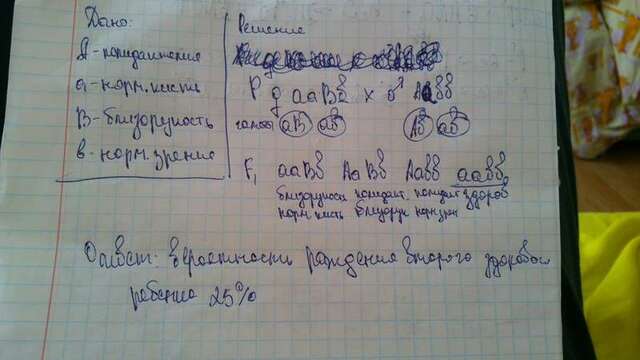 Дано:
А - полидактилия
а - норм. кисть
В - близорукость
в - норм. зрение
Решение
P ♀ ааВв х ♂ Аавв
гаметы аВ ав Ав ав
F₁ ааВв АаВв Аавв аавв
близорукость полидакт. полидакт. здоров
норм. кисть близорук норм. зрен
Ответ: вероятность рождения второго здорового
ребенка 25%